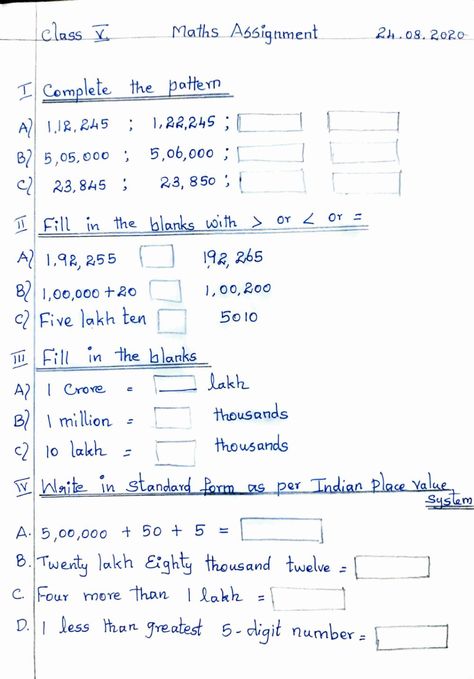 Class V Maths Assignment 24.08.2020
I Complete the pattern
A) 1,12,245 ; 1,22,245 ;
B) 5,05,000 ; 5,06,000 ;
C) 23,845 ; 23,850 ;
II Fill in the blanks with > or < or =
A) 1,92,255 192,265
B) 1,00,000 + 20 1,00,200
C) Five lakh ten 5010
III Fill in the blanks
A) 1 Crore = lakh
B) 1 million = thousands
C) 10 lakh = thousands
IV Write in Standard form as per Indian Place value
System
A. 5,00,000 + 50 + 5 =
B. Twenty lakh Eighty thousand twelve =
C. Four more than 1 lakh =
D. 1 less than greatest 5-digit number =